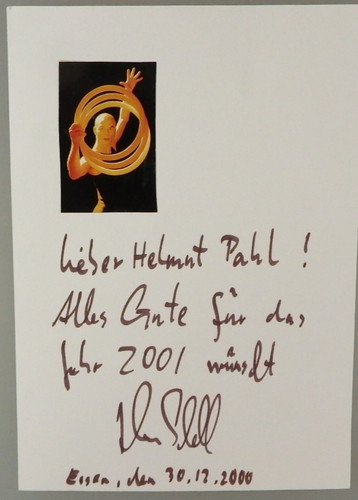 Lieber Helmut Pahl !
Alles Gute für das
Jahr 2001 wünscht
Essen, den 30.12.2000